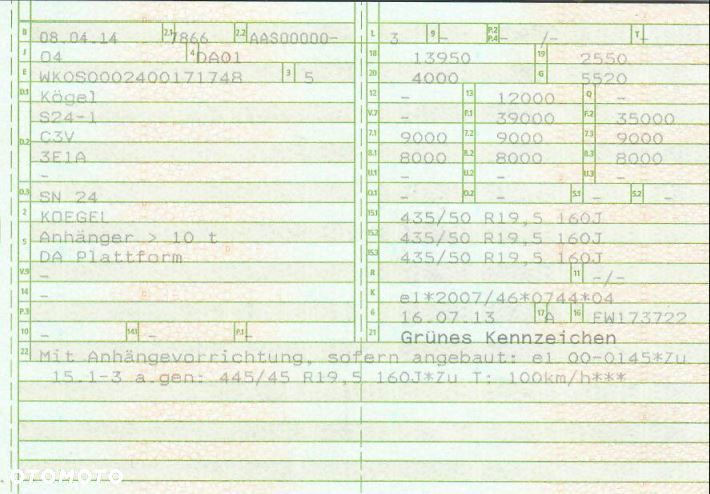 B 08.04.14 2.1 7866 2.2 AAS00000-
J 04 4 DA01
E WKOS0002400171748 3 5
D.1 Kögel
S24-1
D.2 C3V
3E1A
-
D.3 SN 24
2 KOEGEL
5 Anhänger > 10 t
DA Plattform
V.9 -
14 -
P.3
10 - 14.1 - P.1 -
L 3 9 - P.2 P.4 - /- T -
18 13950 19 2550
20 4000 G 5520
12 - 13 12000 Q -
V.7 - F.1 39000 F.2 35000
7.1 9000 7.2 9000 7.3 9000
8.1 8000 8.2 8000 8.3 8000
U.1 - U.2 - U.3 -
O.1 - O.2 - S.1 - S.2 -
15.1 435/50 R19,5 160J
15.2 435/50 R19,5 160J
15.3 435/50 R19,5 160J
R 11 -/-
K e1*2007/46*0744*04
6 16.07.13 17 A 16 FW173722
21 Grünes Kennzeichen
22 Mit Anhängevorrichtung, sofern angebaut: e1 00-0145*Zu
15.1-3 a.gen: 445/45 R19,5 160J*Zu T: 100km/h***
OTOMOTO